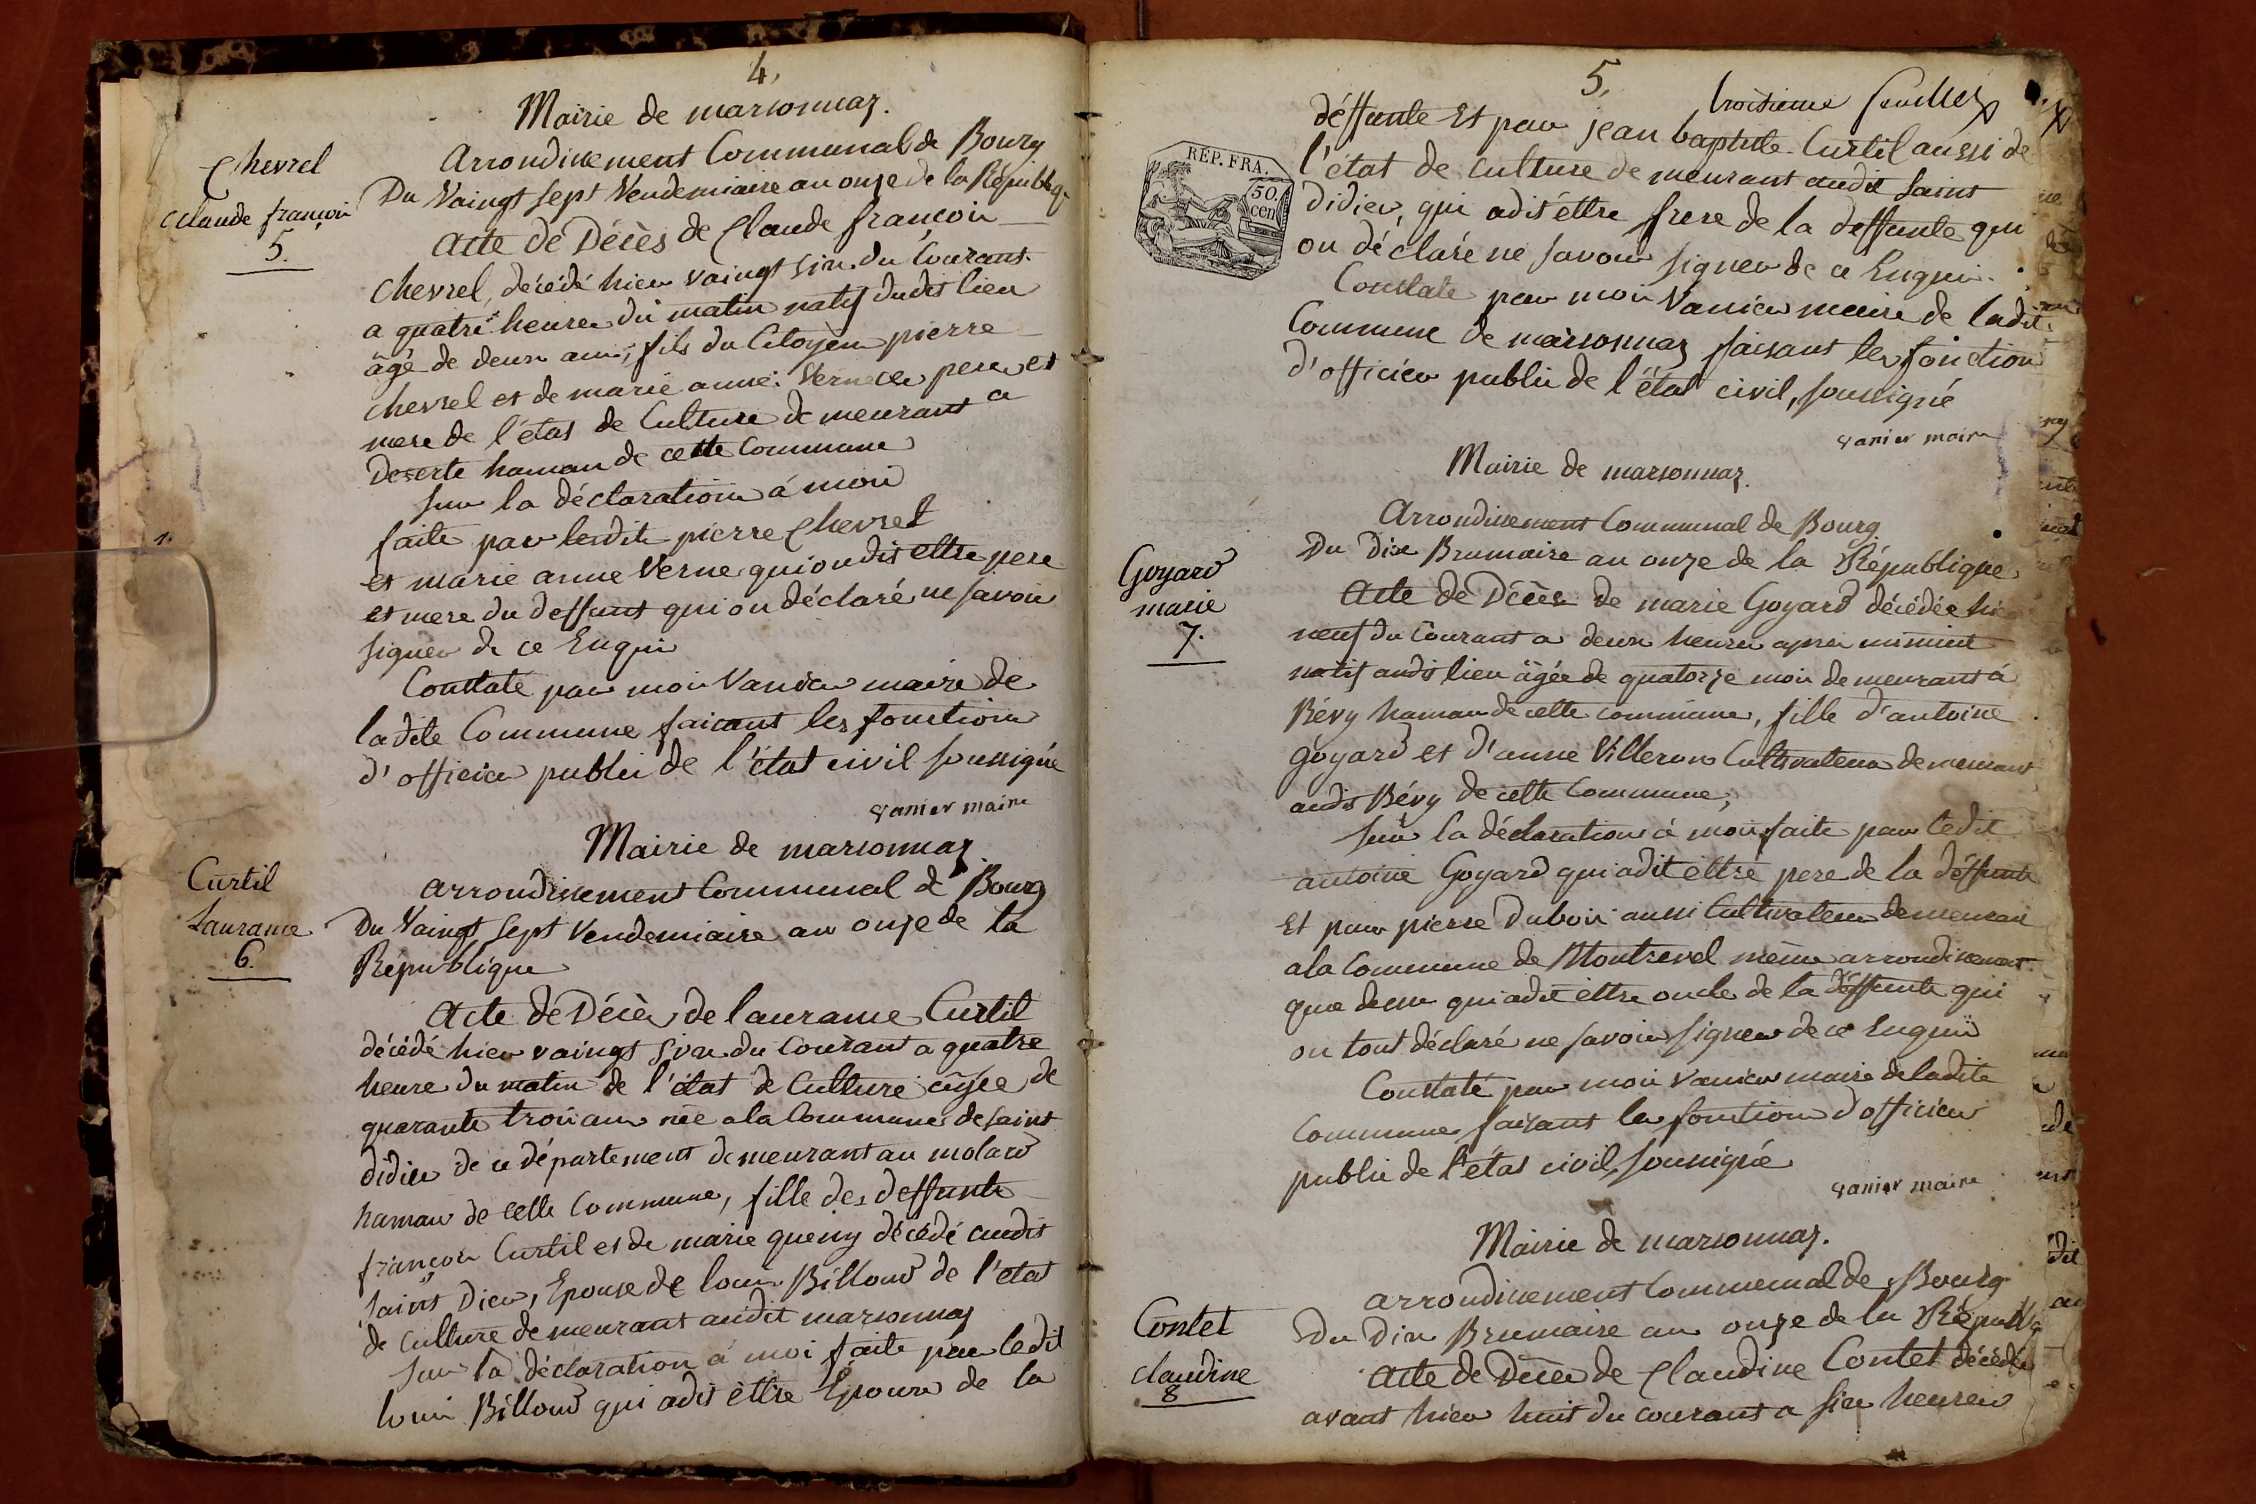 4.
Mairie de marsonnaz.
Arrondissement Communal de Bourg
Chevrel
Claude françois
5.
Du Vaingt sept Vendemiaire an onze de la Républiq
Acte de Décès de Claude françois
chevrel, décédé hier vaingt six du Courant
a quatre heures du matin natif dudit lieu
âgé de deux ans, fils du Citoyen pierre
chevrel et de marie anne Verne ces pere et
mere de l'état de Culture demeurant a
Deserte hamau de cette Commune
Sur la déclaration à moi
faite par lesdits pierre Chevrel
et marie anne Verne qui ondit ettre pere
et mere du deffunt qui on déclaré ne savoir
signer de ce Enquis
Constaté par moi Vanier maire de
ladite Commune faisant les fonction
d'officier public de l'état civil soussigné
vanier maire
Mairie de marsonnaz
Curtil
Laurance
6.
arrondissement Communal de Bourg
Du Vaingt sept Vendemiaire an onze de la
République
Acte de Décès de laurance Curtil
décédé hier vaingt six du Courant a quatre
heure du matin de l'état de Culture âgée de
quarante trois ans née a la Commune de saint
didier de ce département demeurant au molard
hamau de cette Commune, fille des deffunts
françois Curtil et de marie decédé audit
saint Dier, Epouse de louis Billoud de l'etat
de culture demeurant audit marsonnaz
Sur la déclaration a moi faite par ledit
louis Billoud qui adit èttre Epoux de la
5.
troisieme feuillet
REP. FRA.
50.
cen
déffunte Et par jean baptiste Curtil aussi de
l'état de culture demeurant audit saint
Didier, qui adit éttre frere de la deffunte qui
on déclaré ne savoir signer de ce Enquis.
Constaté par moi Vanier maire de ladit.
Commune de marsonnaz faisant les fonction
d'officier public de l'état civil, soussigné
vanier maire
Mairie de marsonnaz.
Arrondissement Communal de Bourg
Goyard
marie
7.
Du Dix Brumaire an onze de la République
Acte de Décès de marie Goyard décédée hier
neuf du Courant a deux heures apres minuit
natif audit lieu âgée de quatorze mois demeurant à
Bévy hamau de cette commune, fille d'antoine
goyard et d'anne Villeron Cultivateur demeurant
audit Bévy de cette Commune,
Sur la déclaration à moi faite par ledit
antoine Goyard qui adit ettre pere de la déffunte
Et par pierre Dubois aussi Cultivateur demeurant
a la Commune de Montrevel même arrondissement
que dessus qui adit ettre oncle de la deffunte qui
on tout déclaré ne savoir signer de ce Enquis
Constaté par moi vanier maire de ladite
Commune faisant les fonction d'officier
public de l'état civil, soussigné
vanier maire
Mairie de marsonnaz.
arrondissement Communal de Bourg
Contet
claudine
8
Du Dix Brumaire an onze de la Républiq
Acte de Décès de Claudine Contet décédée
avant hier huit du courant a six heures